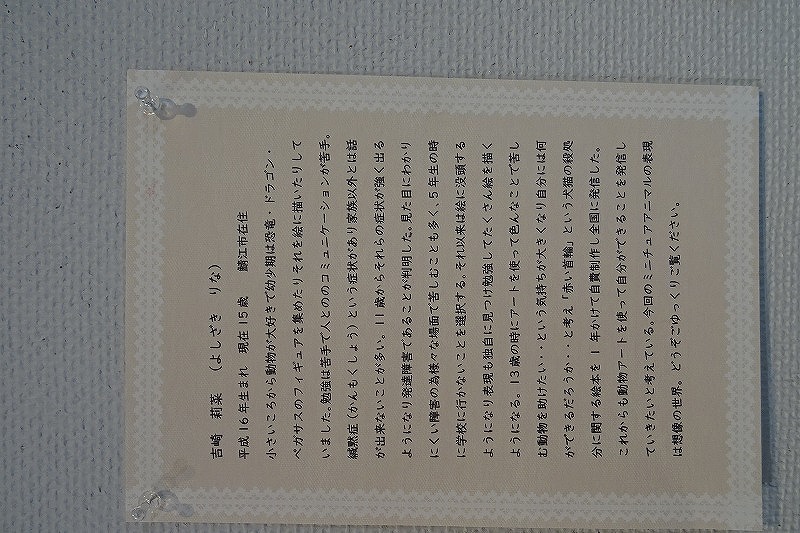 吉崎　莉菜　（よしざき　りな）
平成16年生まれ　現在15歳　　鯖江市在住
小さいころから動物が大好きで幼少期は恐竜・ドラゴン・
ペガサスのフィギュアを集めたりそれを絵に描いたりして
いました。勉強は苦手で人とののコミュニケーションが苦手。
緘黙症（かんもくしょう）という症状があり家族以外とは話
が出来ないことが多い。11歳からそれらの症状が強く出る
ようになり発達障害であることが判明した。見た目にわかり
にくい障害の為様々な場面で苦しむことも多く、5年生の時
に学校に行かないことを選択する。それ以来は絵に没頭する
ようになり表現も独自に見つけ勉強してたくさん絵を描く
ようになる。13歳の時にアートを使って色んなことで苦し
む動物を助けたい・・という気持ちが大きくなり自分には何
ができるだろうか・・と考え「赤い首輪」という犬猫の殺処
分に関する絵本を1年かけて自費制作し全国に発信した。
これからも動物アートを使って自分ができることを発信し
ていきたいと考えている。今回のミニチュアアニマルの表現
は想像の世界。どうぞごゆっくりご覧ください。